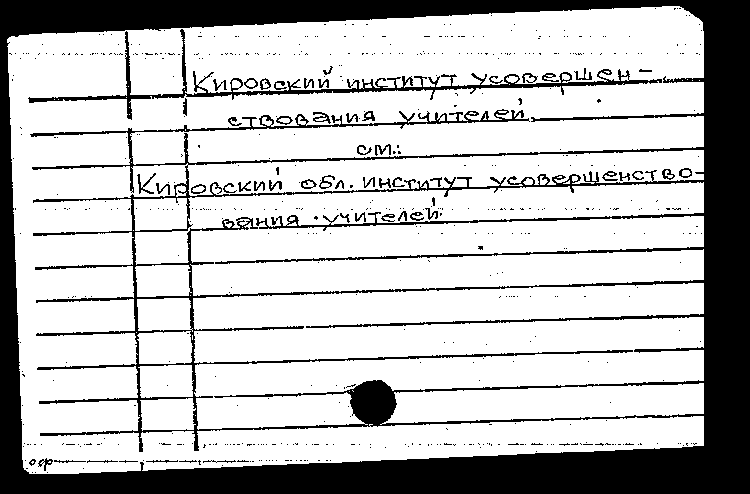 Кировский институт усовершен-
ствования учителей.
см.:
Кировский обл. институт усовершенство-
вания учителей